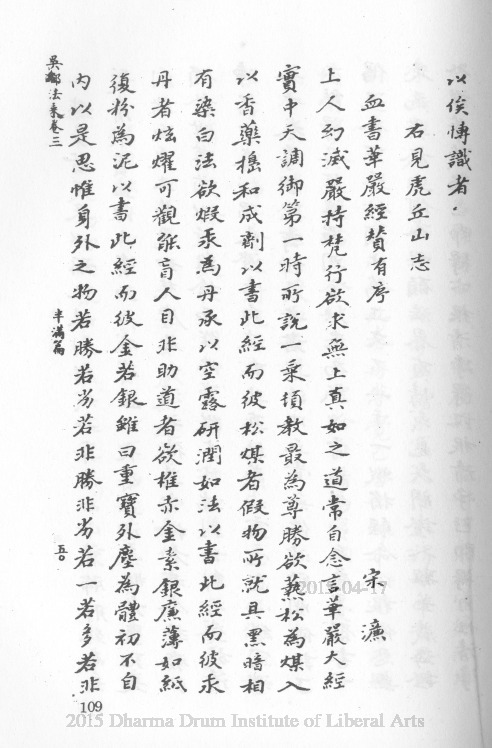 以俟博識者.
右見虎丘山志
血書華嚴經贊有序
宋濂
上人幻滅嚴持梵行欲求無上真如之道常自念言華嚴大經
實中天調御第一時所說一乘頓教最為尊勝欲爇松為煤入
以香藥搗和成劑以書此經而彼松煤者假物所就具黑暗相
有染白法欲煅汞為丹承以空露研潤如法以書此經而彼汞
丹者炫燿可觀能盲人目非助道者欲椎赤金素銀廉薄如紙
復粉為泥以書此經而彼金若銀雖曰重寶外塵為體初不自
內以是思惟身外之物若勝若劣若非勝非劣若一若多若非
吳都法乘卷三
半滿篇
五〇
109
2015-04-17
2015 Dharma Drum Institute of Liberal Arts